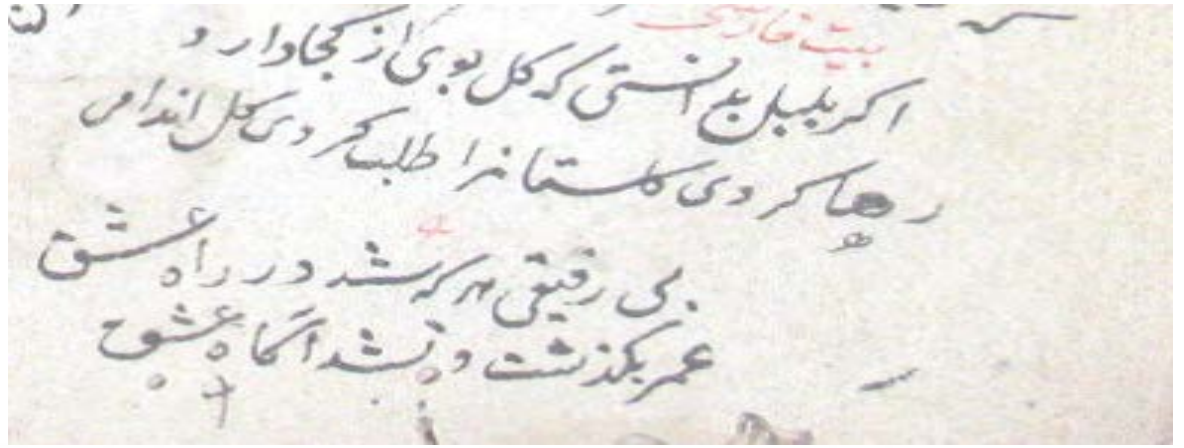 بیت فارسی
اکر بلبل بدانستی که کل بوی از کجا دارد
رها کردی کلستانرا طلب کردی کل اندامی
بی رفیقی هر که شد در راه عشق
عمر بکذشت و نشد آکاه عشق